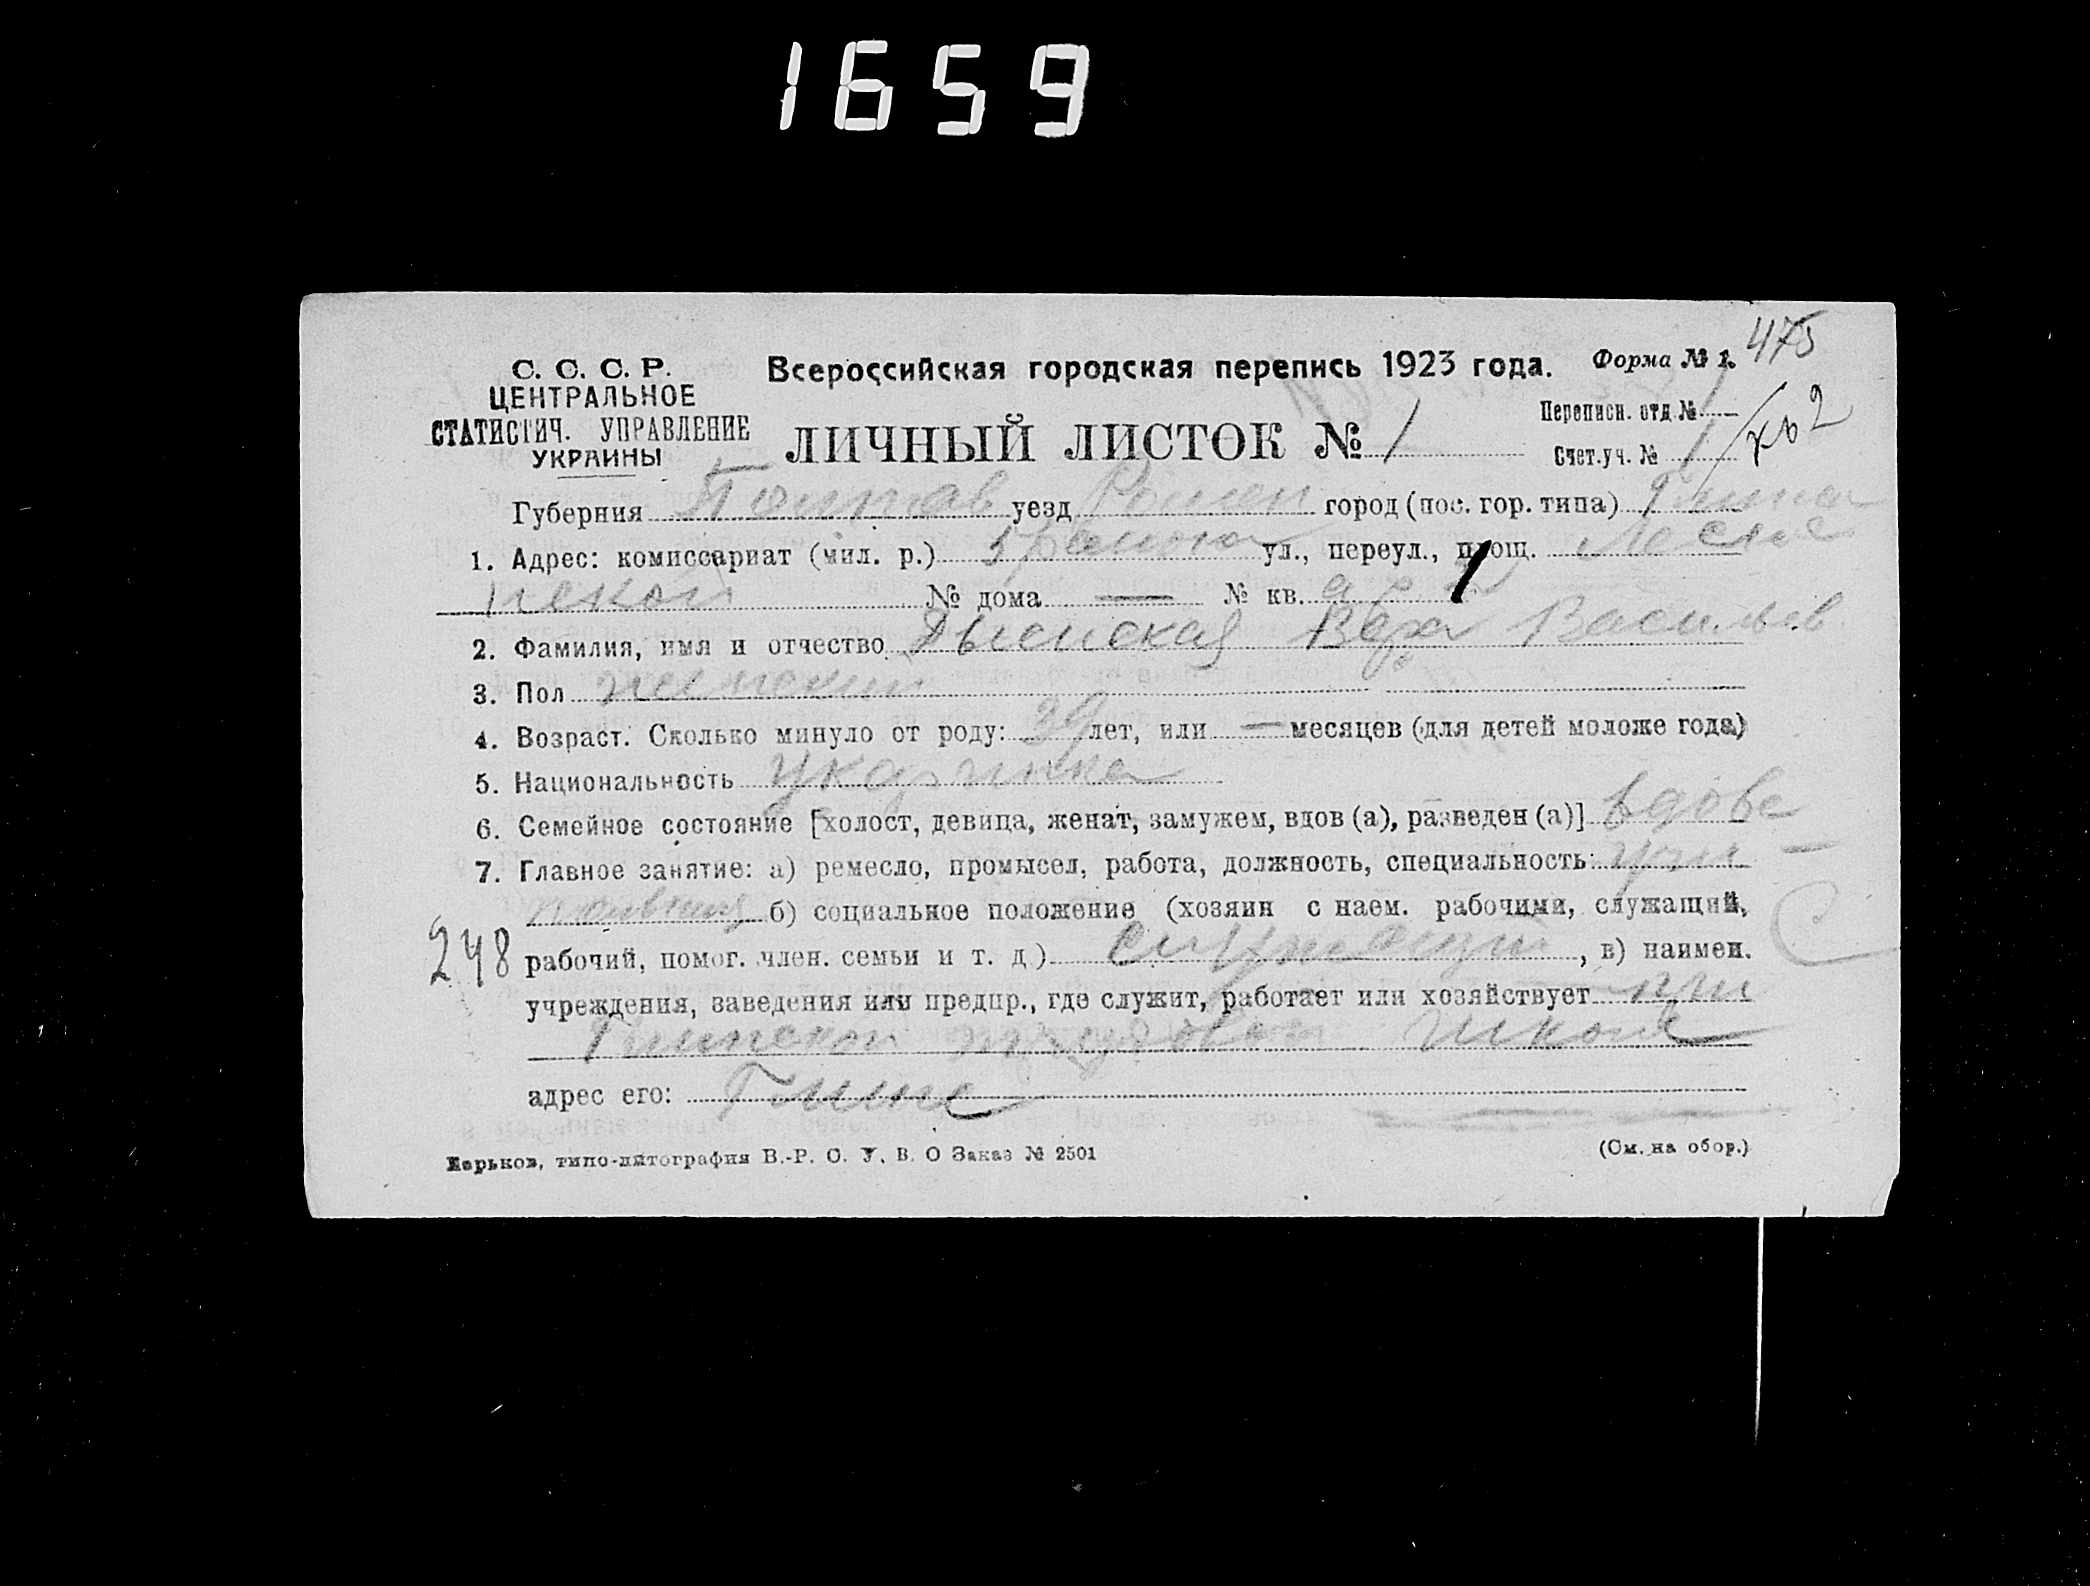 1659
С. С. С. Р.
ЦЕНТРАЛЬНОЕ
СТАТИСТИЧ. УПРАВЛЕНИЕ
УКРАИНЫ
Всероссийская городская перепись 1923 года. Форма № 1. 475
ЛИЧНЫЙ ЛИСТОК № 1
Переписн. отд. №
Счет. уч. № 1
Губерния Полтав уезд Ромен город (пос. гор. типа) Глинск
1. Адрес: комиссариат (мил. р.) ул., переул., площ.
№ дома — № кв.
2. Фамилия, имя и отчество Вера Васильев
3. Пол женский
4. Возраст. Сколько минуло от роду: 39 лет, или — месяцев (для детей моложе года)
5. Национальность
6. Семейное состояние [холост, девица, женат, замужем, вдов (а), разведен (а)] вдова
7. Главное занятие: а) ремесло, промысел, работа, должность, специальность:
б) социальное положение (хозяин с наем. рабочими, служащий,
248 рабочий, помог. член. семьи и т. д.) служащий, в) наимен.
учреждения, заведения или предпр., где служит, работает или хозяйствует при
Глинской трудовой школе
адрес его: Глинск
Харьков, типо-литография В.-Р. С. У. В. О Заказ № 2501
(См. на обор.)